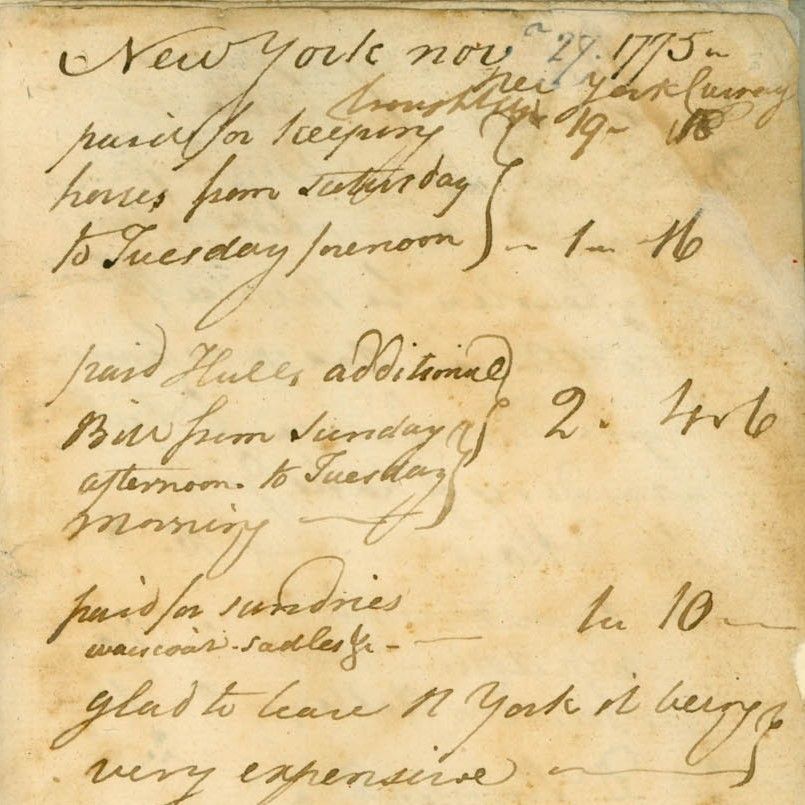 New York nov 27. 1775
York Curray
brought up 19 - 18
paid for keeping
horses from saturday
to Tuesday forenoon - 1 - 16
paid Hulls additional
Bill from sunday 2. 4 - 6
afternoon. to Tuesday
morning
paid for sundries 1 10
waiscoat. sadles &c -
glad to leave N York it being
very expensive